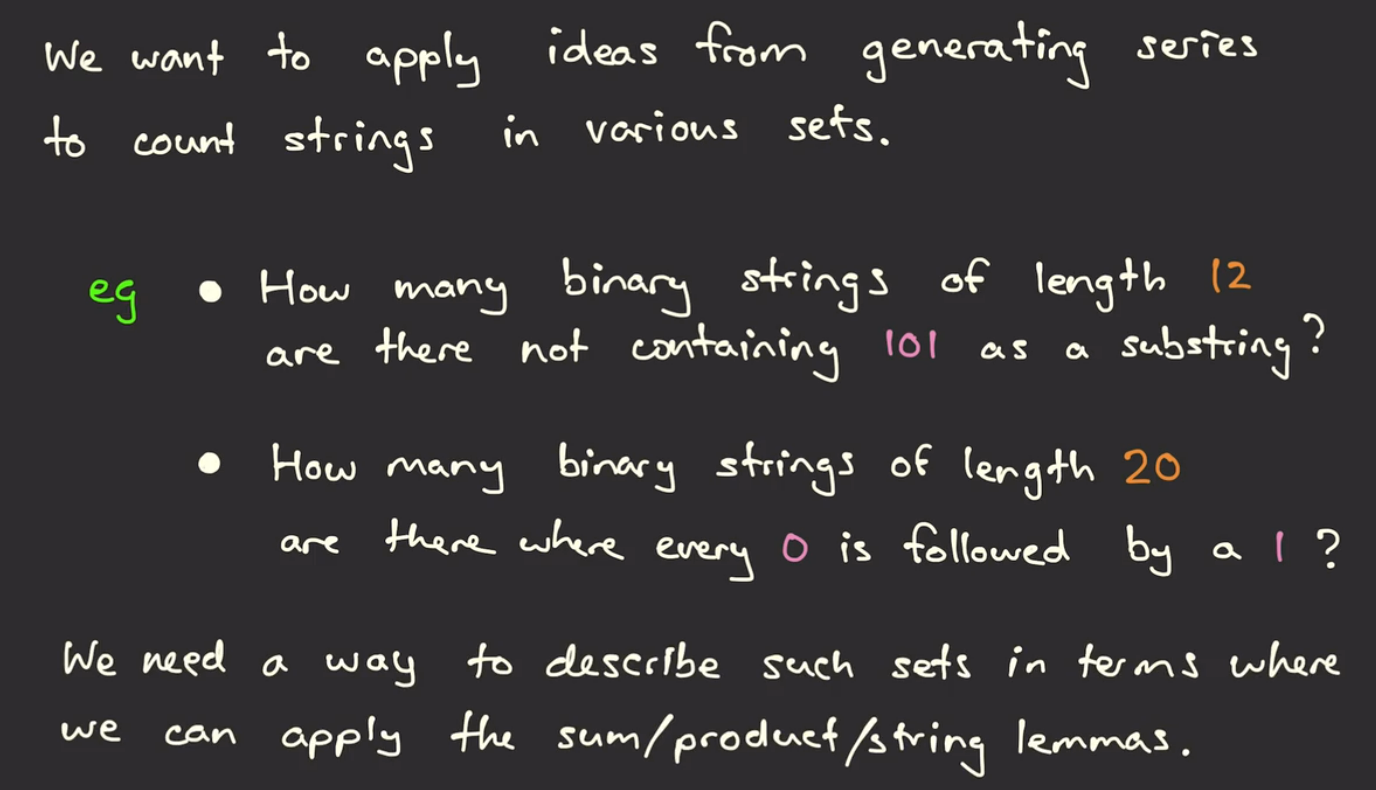 We want to apply ideas from generating series
to count strings in various sets.
eg • How many binary strings of length 12
are there not containing 101 as a substring?
• How many binary strings of length 20
are there where every 0 is followed by a 1?
We need a way to describe such sets in terms where
we can apply the sum/product/string lemmas.